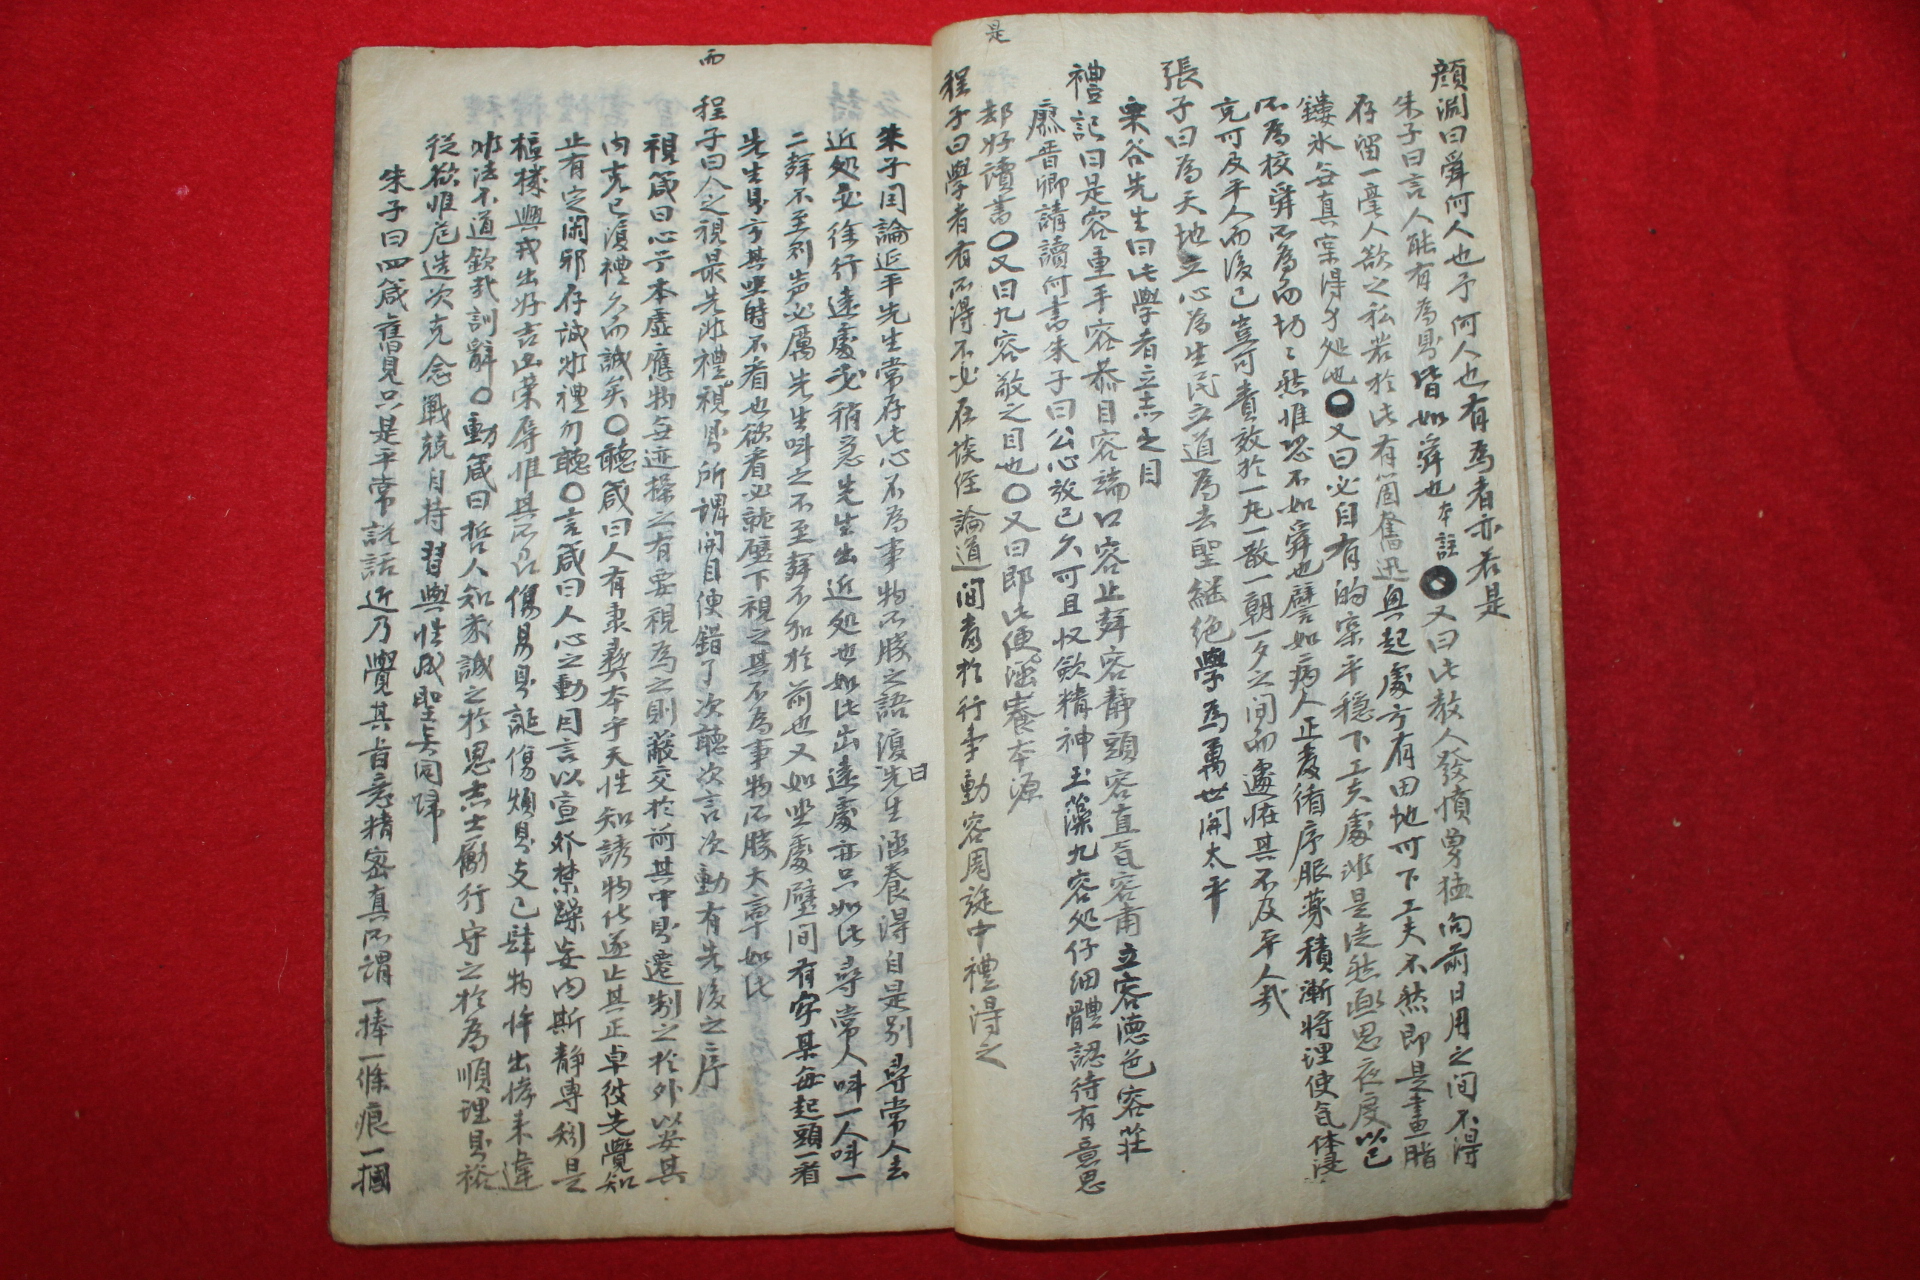 顔淵曰舜何人也予何人也有為者亦若是
朱子曰言人能有為則皆如舜也本註○又曰此教人發憤勇猛向前日用之間不得
存留一毫人欲之私若於此有箇奮迅興起處方有田地可下工夫不然即是畫脂
鏤氷無真実得力処也○又曰必自有的実平穏下工夫處非是徒然晝思夜度以已
不為校舜所為而切々然惟恐不如舜也譬如病人正要循序服薬積漸将理使気体浸
充可及平人而後已豈可責效於一丸一散一朝一夕之間而遽恠其不及平人哉
張子曰為天地立心為生民立道為去聖継絶學為萬世開太平
栗谷先生曰此學者立志之目
禮記曰足容重手容恭目容端口容止聲容静頭容直気容肅立容徳色容莊
廖晋卿請讀何書朱子曰公心放已久可且収斂精神玉藻九容処仔細體認待有意思
却好讀書○又曰九容敬之目也○又曰即此便是涵養本源
程子曰學者有所得不必在談經論道間當於行事動容周旋中禮得之
是
而
朱子曰論延平先生常存此心不為事物所勝之語復曰先生涵養得自是别尋常人去
近処必徐行遠處必稍急先生出近処也如此出遠處亦只如此尋常人呌一人呌一
二聲不至則声必厲先生呌之不至聲不加於前也又如坐處壁間有字某每起頭一看
先生則方其坐時不看也欲看必就壁下視之其不為事物所勝大率如此
程子曰人之視最先非禮視則所謂開目便錯了次聽次言次動有先後之序
視箴曰心兮本虚應物無迹操之有要視為之則蔽交於前其中則遷制之於外以安其
内克己復禮久而誠矣○聽箴曰人有秉彛本乎天性知誘物化遂亡其正卓彼先覺知
止有定閑邪存誠非禮勿聽○言箴曰人心之動因言以宣發禁躁妄内斯静專矧是
樞機興戎出好吉凶榮辱惟其所召傷易則誕傷煩則支己肆物忤出悖来違
非法不道欽哉訓辭○動箴曰哲人知幾誠之於思志士勵行守之於為順理則裕
従欲惟危造次克念戰兢自持習與性成聖賢同歸
朱子曰四箴舊見只是平常説話近乃覺其旨意精密真所謂一捧一條痕一摑